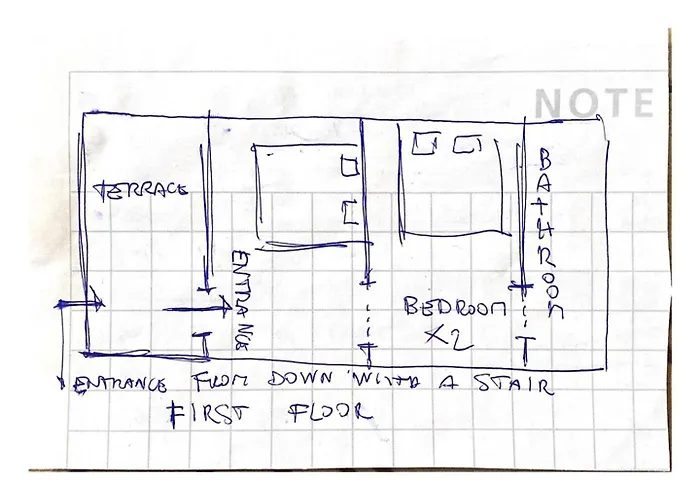 NOTE
TERRACE
ENTRANCE
BEDROOM
X2
BATHROOM
ENTRANCE FROM DOWN WITH A STAIR
FIRST FLOOR